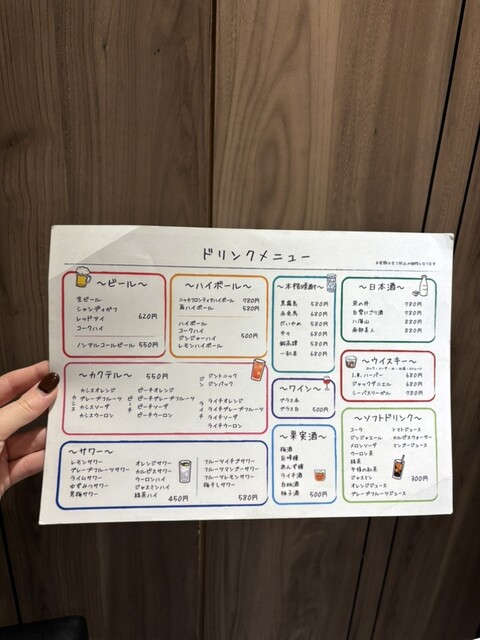 ドリンクメニュー
〜ビール〜
生ビール
シャンディガフ
レッドアイ
コークハイ
620円
ノンアルコールビール 550円
〜ハイボール〜
ニッカフロンティアハイボール 780円
角ハイボール 580円
ハイボール
コークハイ
ジンジャーハイ
レモンハイボール
500円
〜本格焼酎〜
黒霧島 580円
赤兎馬 680円
だいやめ 580円
中々 580円
580円
580円
〜日本酒〜
780円
780円
八海山 880円
南部美人 880円
〜カクテル〜 550円
カシス
カシスオレンジ
カシスグレープフルーツ
カシスソーダ
カシスウーロン
ピーチ
ピーチオレンジ
ピーチグレープフルーツ
ピーチソーダ
ピーチウーロン
ジン
ジントニック
ジンバック
ライチ
ライチオレンジ
ライチグレープフルーツ
ライチソーダ
ライチウーロン
〜ワイン〜
グラス赤
グラス白
500円
〜ウイスキー〜
I.W.ハーパー 680円
ジャックダニエル 680円
シーバスリーガル 780円
〜サワー〜
レモンサワー
グレープフルーツサワー
ライムサワー
ゆずみつサワー
黒梅サワー
オレンジサワー
カルピスサワー
ウーロンハイ
ジャスミンハイ
緑茶ハイ
450円
フルーツイチゴサワー
フルーツマンゴーサワー
フルーツレモンサワー
梅干しサワー
580円
〜果実酒〜
梅酒
巨峰酒
あんず酒
ライチ酒
白桃酒
柚子酒
500円
〜ソフトドリンク〜
コーラ
ジンジャエール
メロンソーダ
ウーロン茶
緑茶
午後の紅茶
ジャスミン
オレンジジュース
グレープフルーツジュース
トマトジュース
カルピスウォーター
マンゴージュース
300円